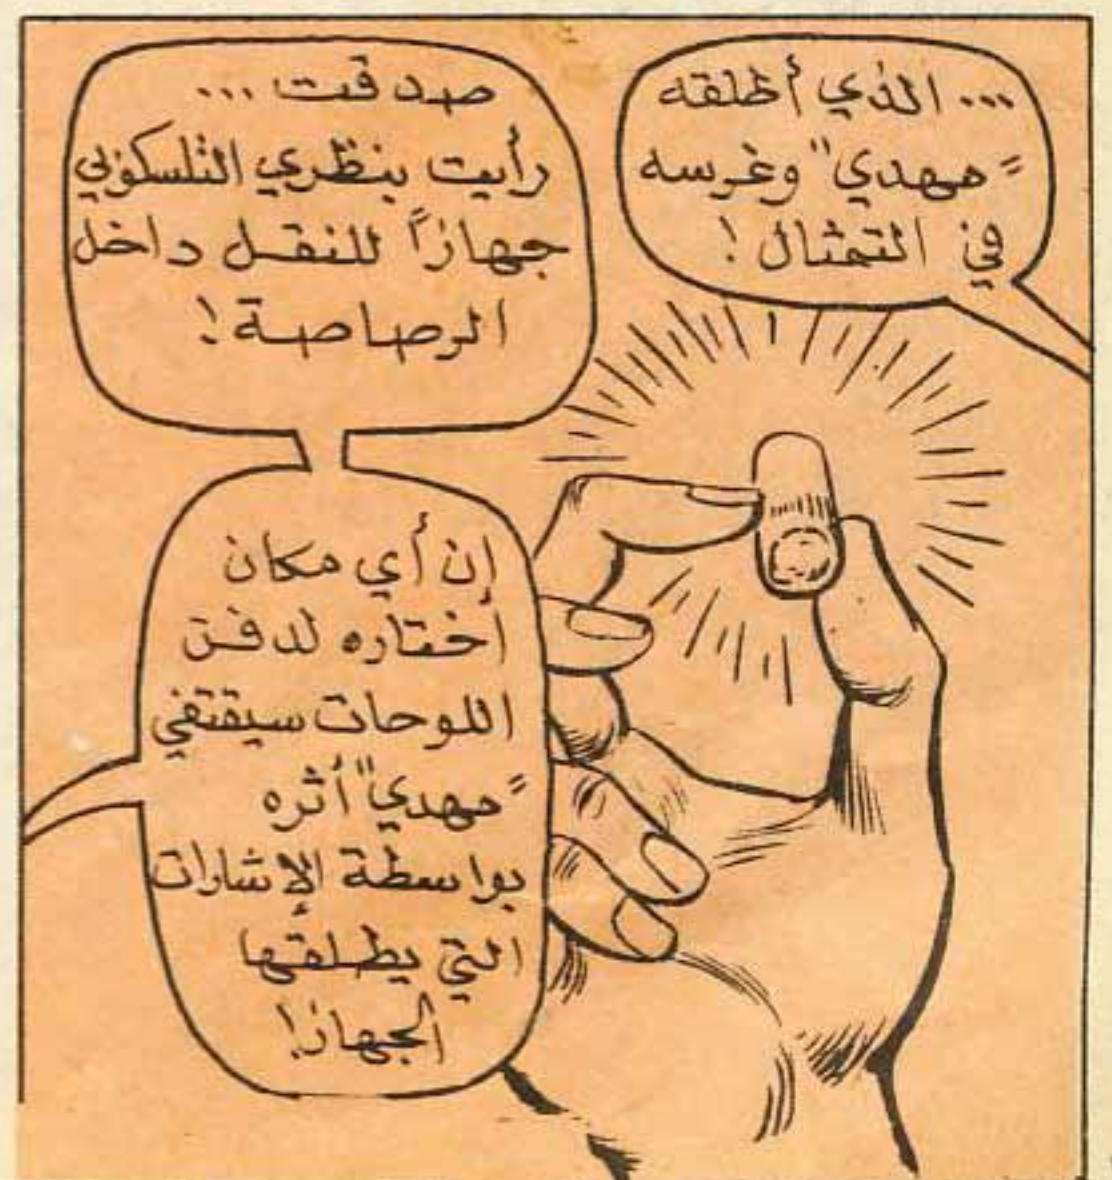 ... الذي أطلقه
"مهدي" وغرسه
في التمثال!
صدقت ...
رأيت بنظري التلسكوبي
جهازاً للنقل داخل
الرصاصة!
إن أي مكان
أختاره لدفن
اللوحات سيقتفي
"مهدي" أثره
بواسطة الإشارات
التي يطلقها
الجهاز!